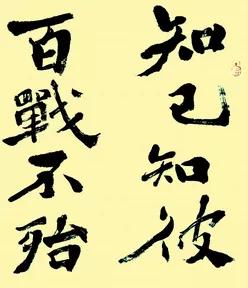 知己知彼
百戰不殆